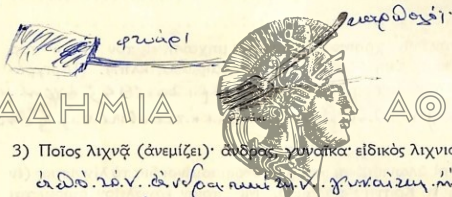 φτυάρι
καρπολόϊ
ΑΔΗΜΙΑ ΑΘ
3) Ποῖος λιχνᾷ (ἀνεμίζει)· ἄνδρας, γυναῖκα· εἰδικὸς λιχνισ
ἀπό τόν ἄνδρα καί τήν γυναίκα